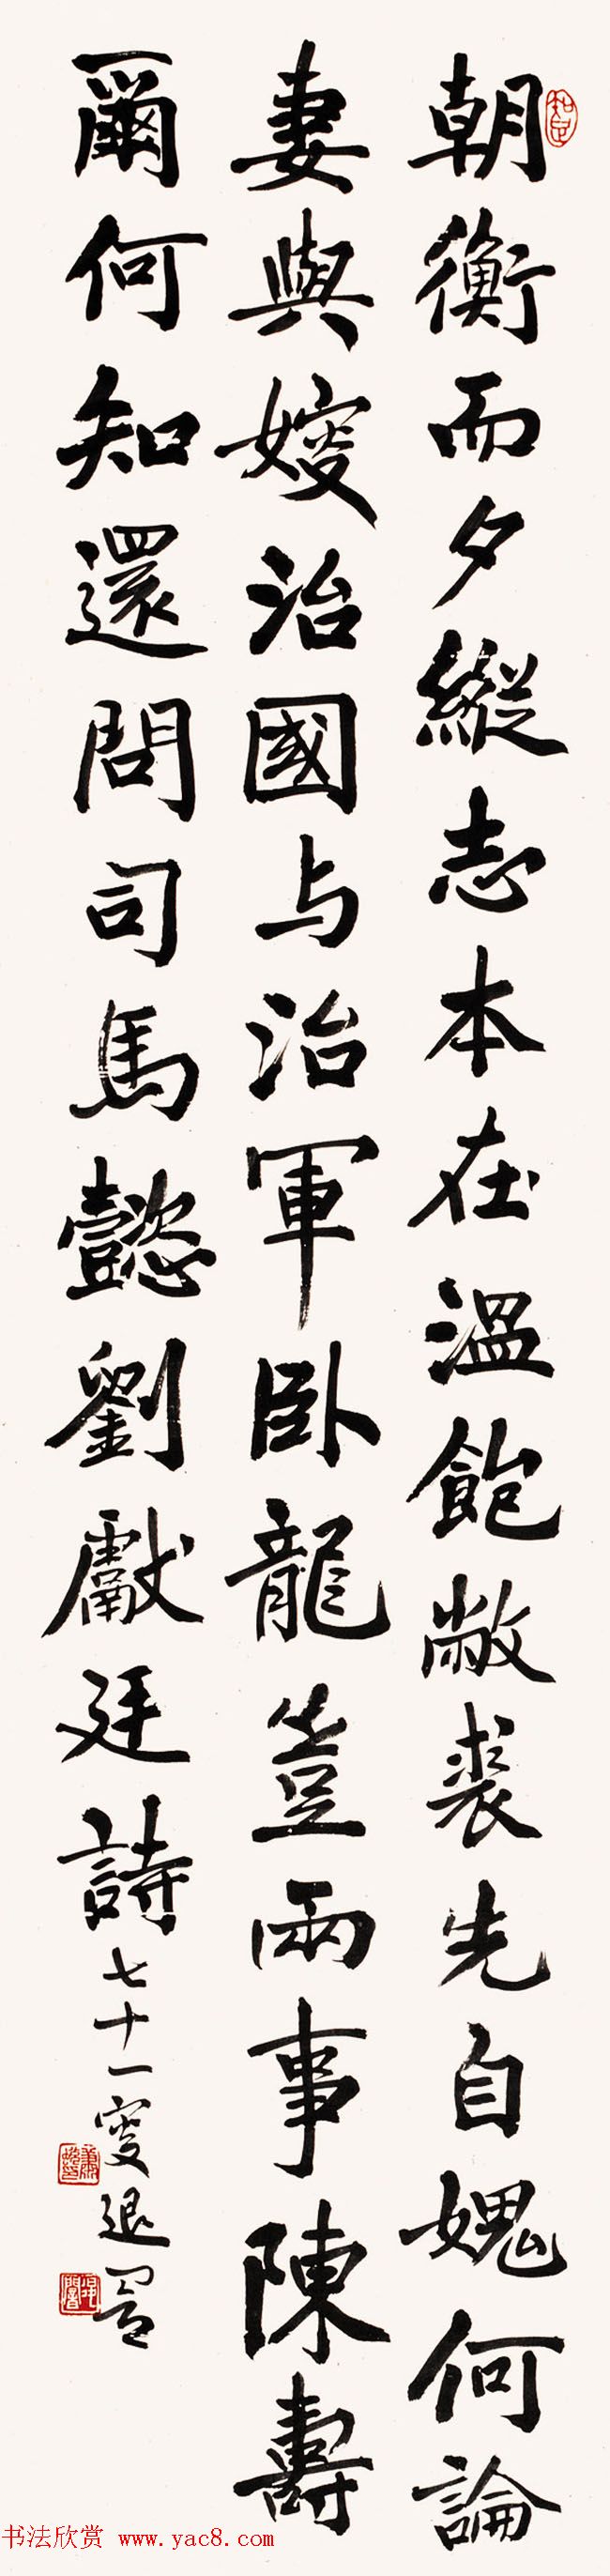 朝衡而夕縱志本在溫飽敝裘先自媿何論
妻與嫂治國与治軍卧龍豈兩事陳壽
爾何知還問司馬懿劉獻廷詩
七十一叟退闇
书法欣赏 www.yac8.com